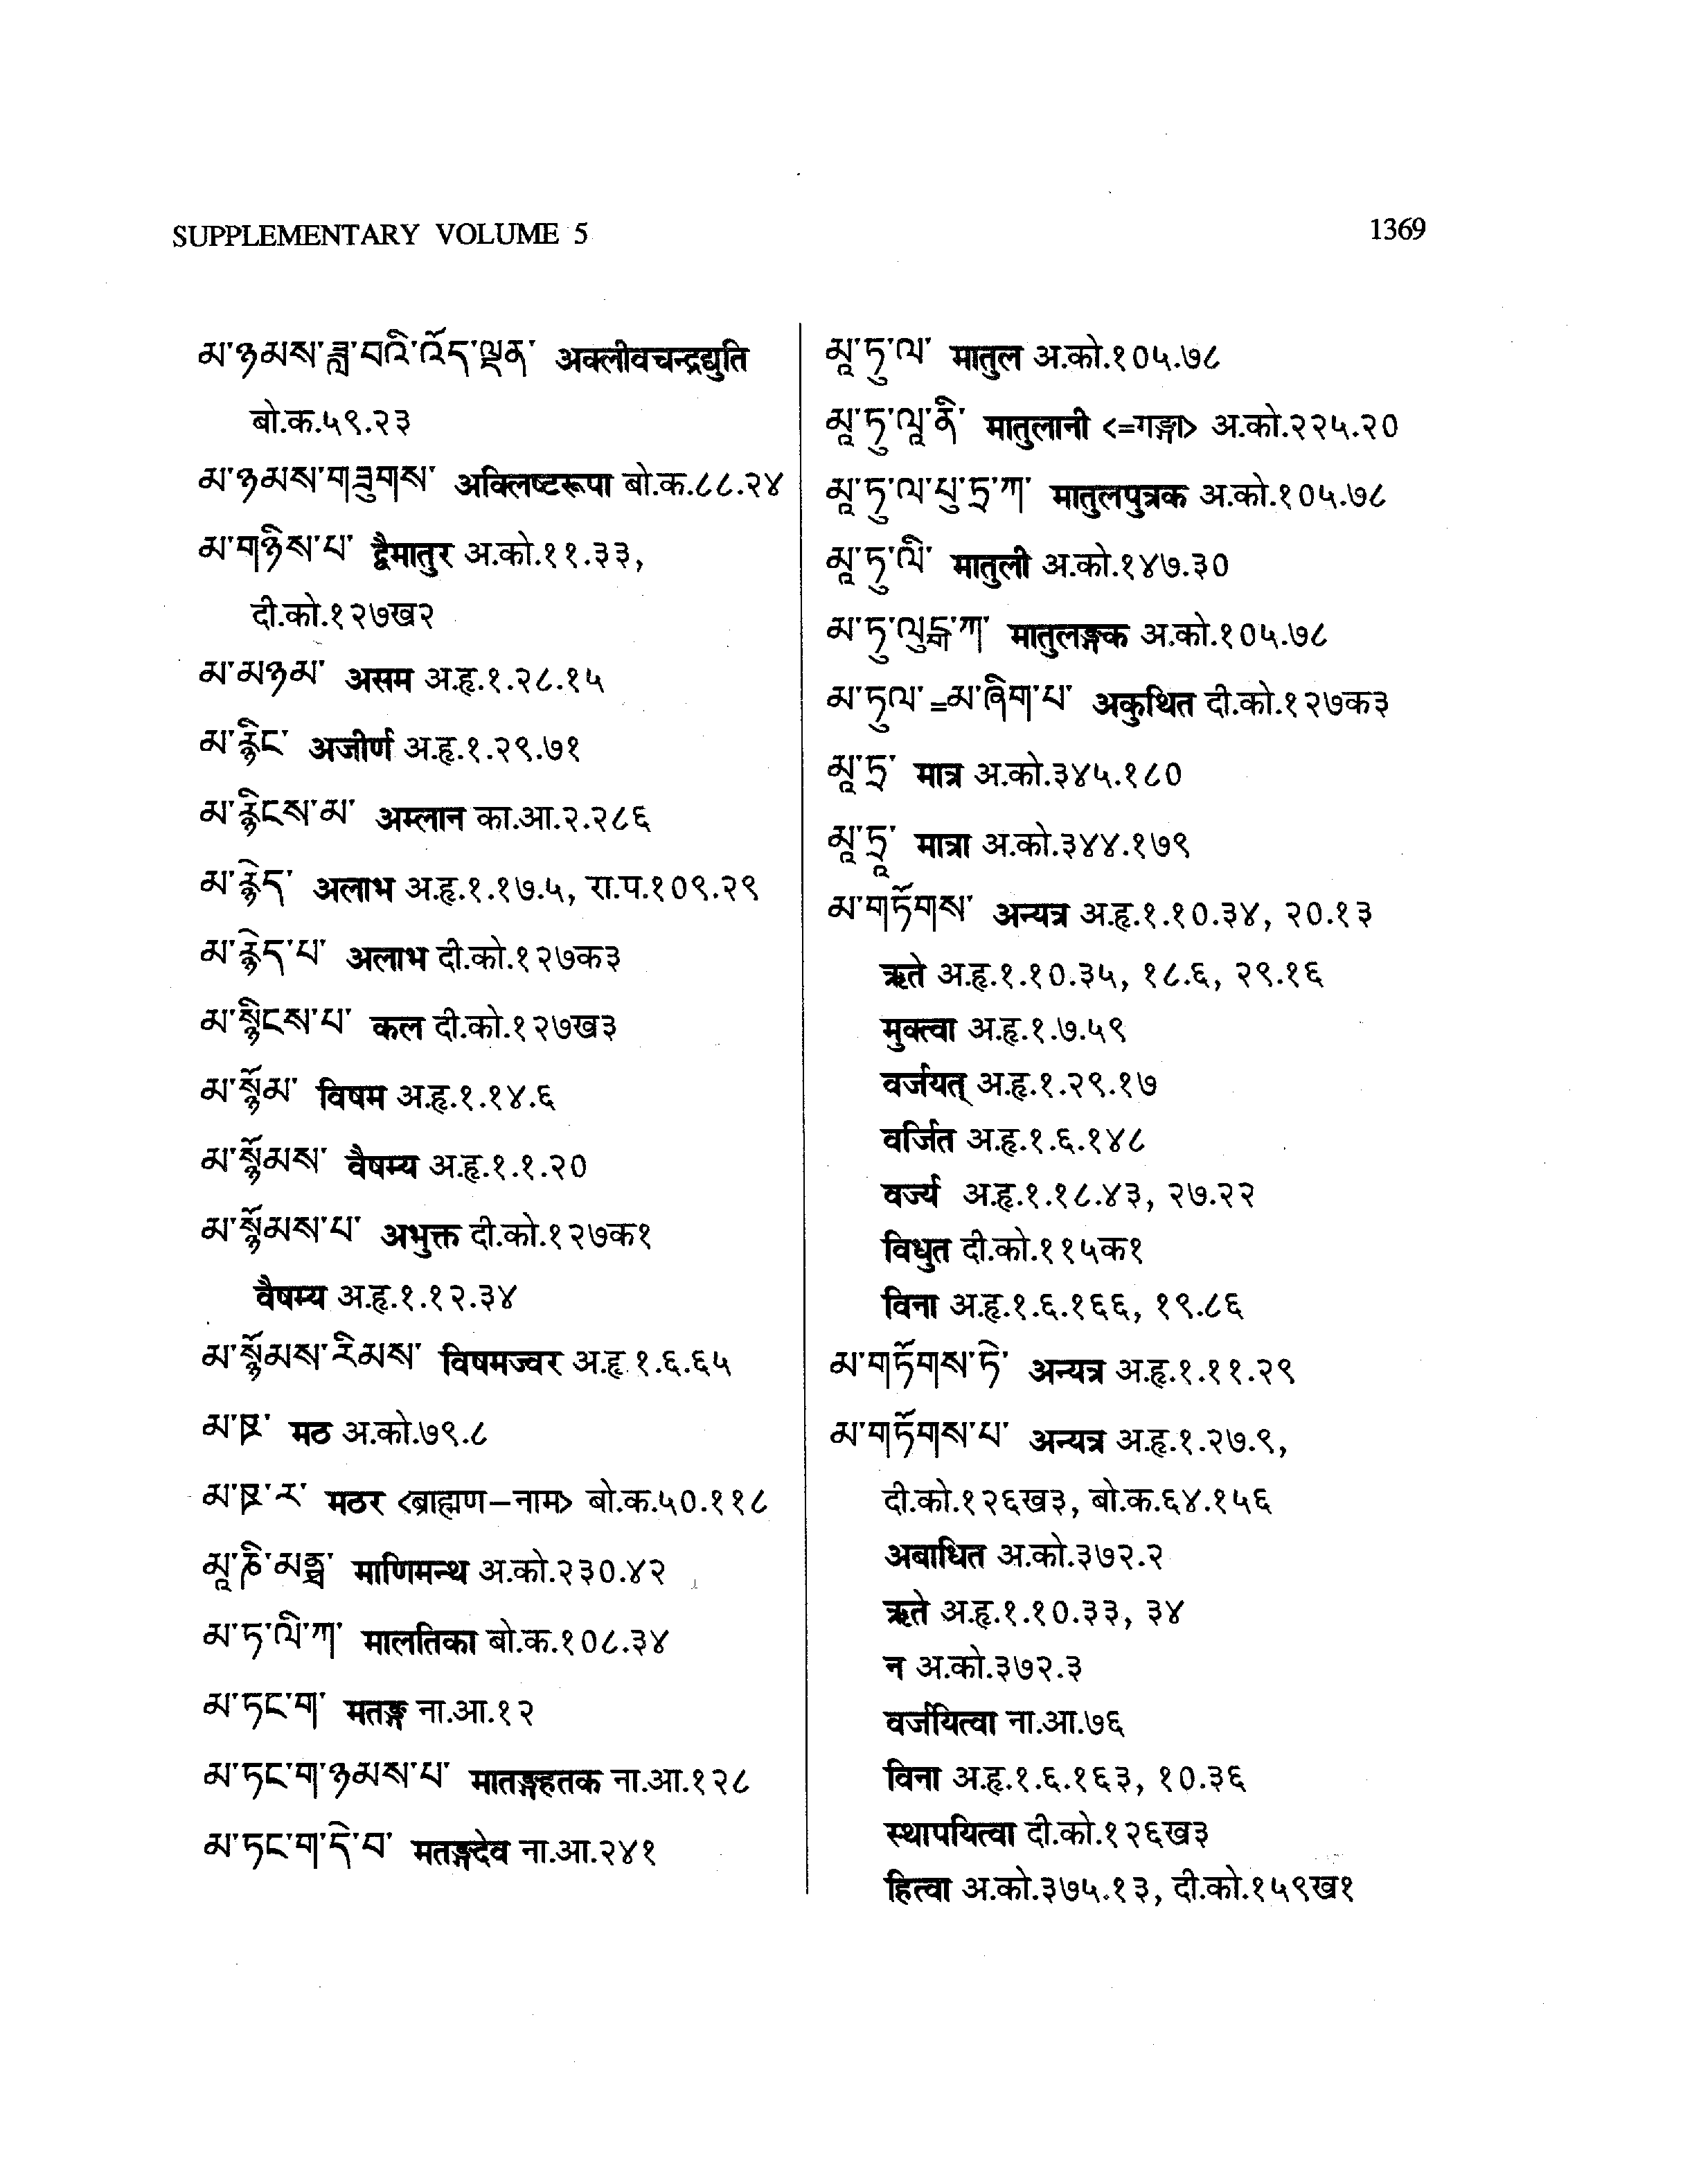 SUPPLEMENTARY VOLUME 5
1369
མ་ཉམས་ཟླ་བའི་འོད་ལྡན་ अक्लीवचन्द्रद्युति
बो.क.५९.२३
མ་ཉམས་གཟུགས་ अक्लिष्टरूपा बो.क.८८.२४
མ་གཉིས་པ་ द्वैमातुर अ.को.११.३३,
दी.को.१२७ख२
མ་མཉམ་ असम अ.हृ.१.२८.१५
མ་རྙིང་ अजीर्ण अ.हृ.१.२९.७१
མ་རྙིངས་མ་ अम्लान का.आ.२.२८६
མ་རྙེད་ अलाभ अ.हृ.१.१७.५, रा.प.१०९.२९
མ་རྙེད་པ་ अलाभ दी.को.१२७क३
མ་སྙིངས་པ་ कल दी.को.१२७ख३
མ་སྙོམ་ विषम अ.हृ.१.१४.६
མ་སྙོམས་ वैषम्य अ.हृ.१.१.२०
མ་སྙོམས་པ་ अभुक्त दी.को.१२७क१
वैषम्य अ.हृ.१.१२.३४
མ་སྙོམས་རིམས་ विषमज्वर अ.हृ.१.६.६५
མ་ཋ་ मठ अ.को.७९.८
མ་ཋ་ར་ मठर <ब्राह्मण–नाम> बो.क.५०.११८
མཱ་ཎི་མནྠ་ माणिमन्थ अ.को.२३०.४२
མ་ཏ་ལི་ཀ་ मालतिका बो.क.१०८.३४
མ་ཏང་ག་ मतङ्ग ना.आ.१२
མ་ཏང་ག་ཉམས་པ་ मातङ्गहतक ना.आ.१२८
མ་ཏང་ག་དེ་བ་ मतङ्गदेव ना.आ.२४१
མཱ་ཏུ་ལ་ मातुल अ.को.१०५.७८
མཱ་ཏུ་ལཱ་ནི་ मातुलानी <=गङ्गा> अ.को.२२५.२०
མཱ་ཏུ་ལ་པུ་ཏྲ་ཀ་ मातुलपुत्रक अ.को.१०५.७८
མཱ་ཏུ་ལི་ मातुली अ.को.१४७.३०
མ་ཏུ་ལུངྒ་ཀ་ मातुलङ्गक अ.को.१०५.७८
མ་ཏུལ་=མ་ཞིག་པ་ अकुथित दी.को.१२७क३
མཱ་ཏྲ་ मात्र अ.को.३४५.१८०
མཱ་ཏྲཱ་ मात्रा अ.को.३४४.१७९
མ་གཏོགས་ अन्यत्र अ.हृ.१.१०.३४, २०.१३
ऋते अ.हृ.१.१०.३५, १८.६, २९.१६
मुक्त्वा अ.हृ.१.७.५९
वर्जयत् अ.हृ.१.२९.१७
वर्जित अ.हृ.१.६.१४८
वर्ज्य अ.हृ.१.१८.४३, २७.२२
विधुत दी.को.११५क१
विना अ.हृ.१.६.१६६, १९.८६
མ་གཏོགས་ཏེ་ अन्यत्र अ.हृ.१.११.२९
མ་གཏོགས་པ་ अन्यत्र अ.हृ.१.२७.९,
दी.को.१२६ख३, बो.क.६४.१५६
अबाधित अ.को.३७२.२
ऋते अ.हृ.१.१०.३३, ३४
न अ.को.३७२.३
वर्जयित्वा ना.आ.७६
विना अ.हृ.१.६.१६३, १०.३६
स्थापयित्वा दी.को.१२६ख३
हित्वा अ.को.३७५.१३, दी.को.१५९ख१